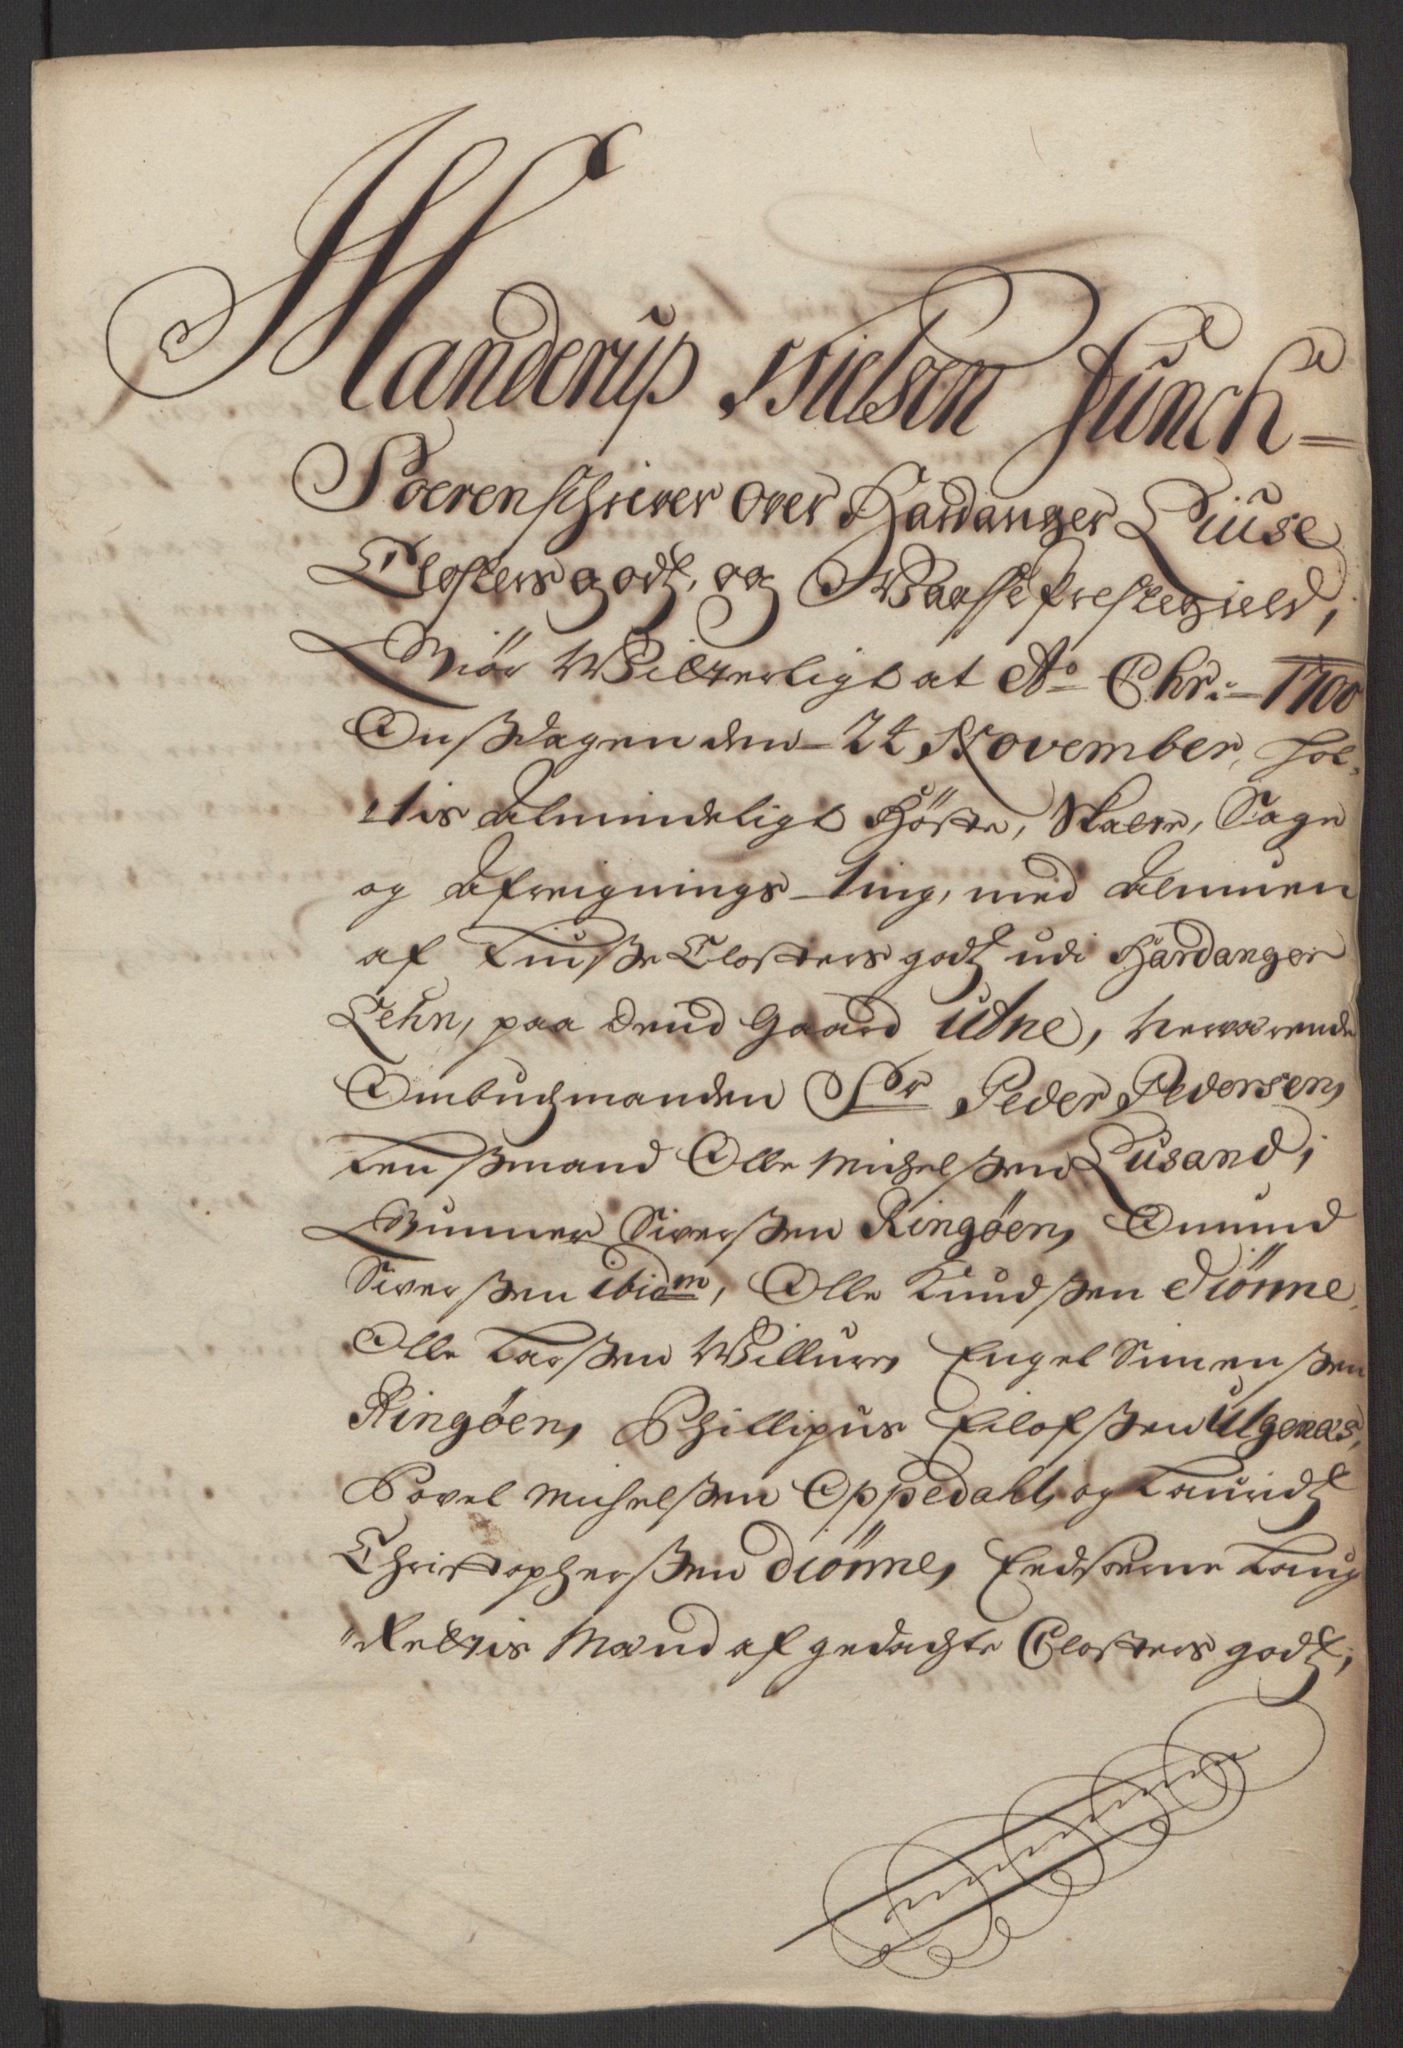 Manderup Nielsen Junch
Soerenschriver over Hardanger Liuse
Closters godtz, og Waasse Prestegield,
Giør Witterligt at Ao Chr: 1700
Onssdagen den 24 November, hol-
tis Almindeligt Høste, Skatte, Sage
og Afreignings-Ting, med Almuen
af Liusse Closters godtz udi Hardanger
Lehn, paa dend Gaard Utne, Nerværende
Ombudzmanden Sr Peder Pedersen,
Lenssmand Olle Michelssen Lusand,
Gunner Siverssen Ringøen, Omund
Siverssen ibidm, Olle Knudssen Diønne,
Olle Larssen Willure, Engel Simenssen
Ringøen, Phillipus Eilofssen Ulgenæs,
Povel Michelssen Oppedahl, og Lauridtz
Christopherssen Diønne, Eedsorne Laug
Rettis Mænd af gedachte Closters godtz,